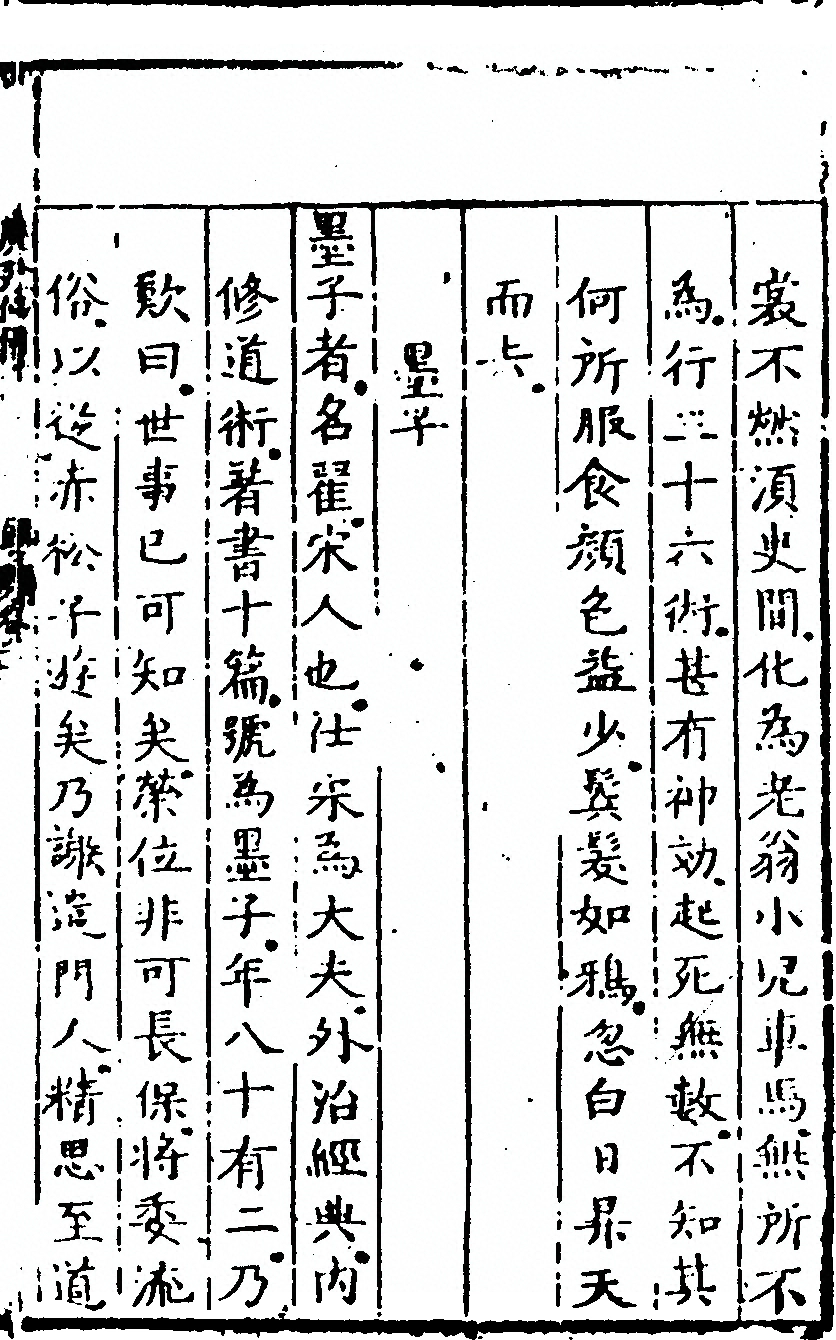 裳不燃須臾間化為老翁小児車馬無所不
為行三十六術甚有神効起死無數不知其
何所服食顔色益少鬂髮如鴉忽白日昇天
而去
墨子
墨子者名翟宋人也仕宋為大夫外治經典内
修道術著書十篇號為墨子年八十有二乃
歎曰世事已可知矣榮位非可長保將委流
俗以從赤松子遊矣乃謝遣門人精思至道